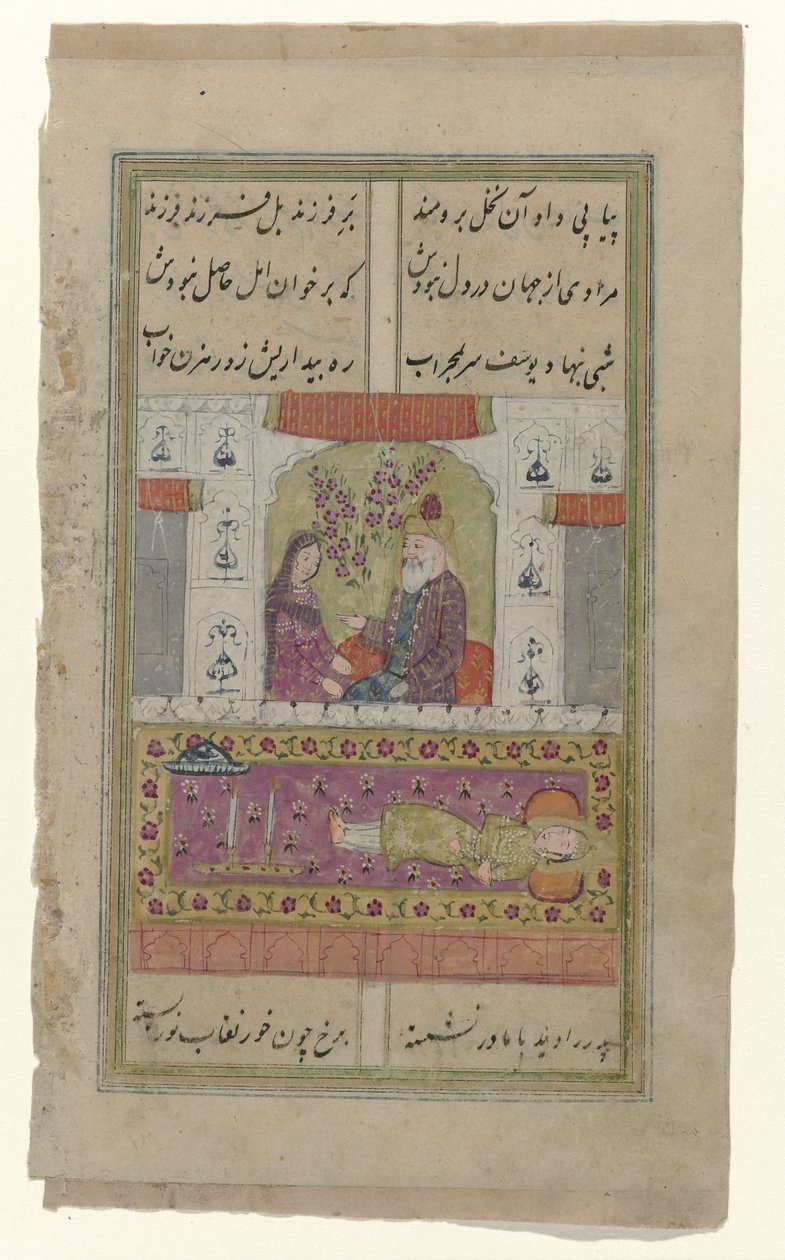 پیاپی داد آن نخل برومند بَرِ فرزند بل فرزند فرزند
مرادی از جهان در دل نبودش که بر خوان امل حاصل نبودش
شبی بنهاد یوسف سر بمحراب ره بیداریش زد رهزن خواب
پدر را دید با مادر نشسته برخ چون خور نقاب نور بسته